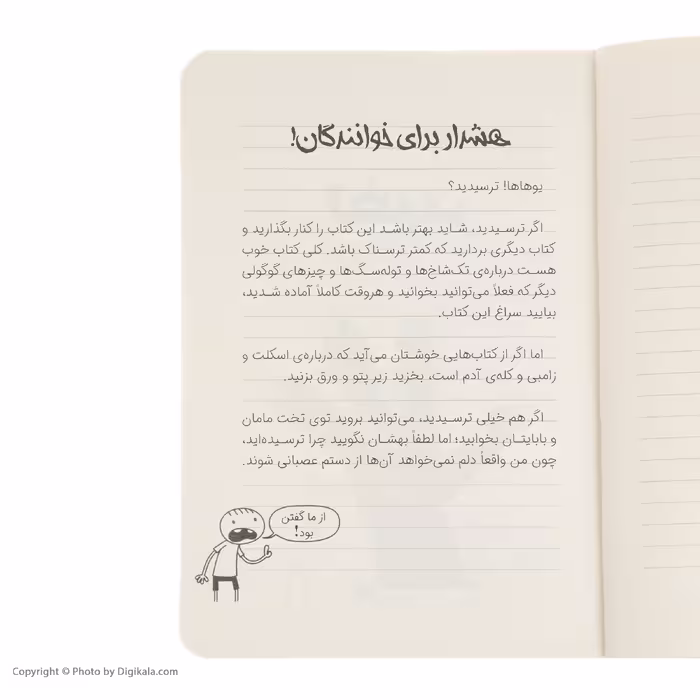 هشدار برای خوانندگان!
یوهاها! ترسیدید؟
اگر ترسیدید، شاید بهتر باشد این کتاب را کنار بگذارید و
کتاب دیگری بردارید که کمتر ترسناک باشد. کلی کتاب خوب
هست درباره‌ی تک‌شاخ‌ها و توله‌سگ‌ها و چیزهای گوگولی
دیگر که فعلاً می‌توانید بخوانید و هروقت کاملاً آماده شدید،
بیایید سراغ این کتاب.
اما اگر از کتاب‌هایی خوشتان می‌آید که درباره‌ی اسکلت و
زامبی و کله‌ی آدم است، بخزید زیر پتو و ورق بزنید.
اگر هم خیلی ترسیدید، می‌توانید بروید توی تخت مامان
و بابایتان بخوابید؛ اما لطفاً بهشان نگویید چرا ترسیده‌اید،
چون من واقعاً دلم نمی‌خواهد آن‌ها از دستم عصبانی شوند.
از ما گفتن
بود!
Copyright © Photo by Digikala.com